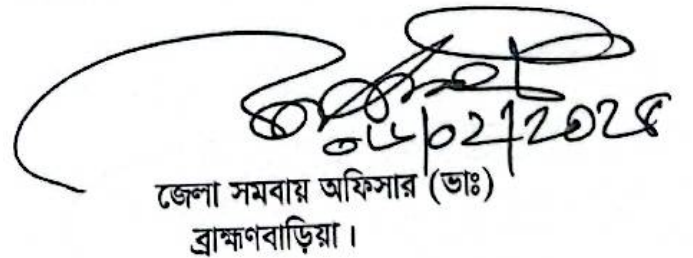 ০৮/০২/২০২৪
জেলা সমবায় অফিসার (ভাঃ)
ব্রাহ্মণবাড়িয়া।